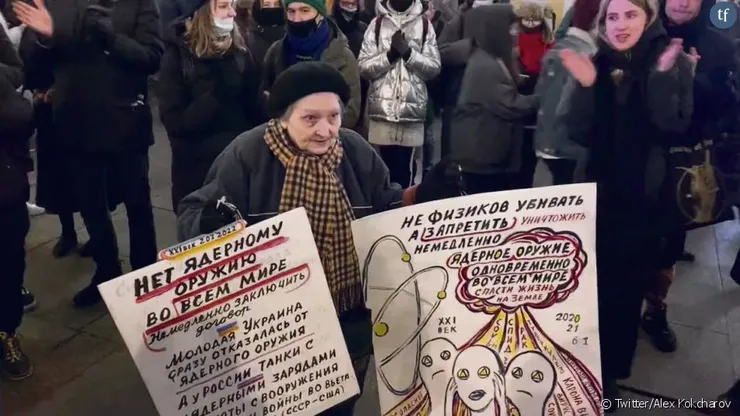 tf
XXI ВЕК
2.03.2022
НЕТ ЯДЕРНОМУ
ОРУЖИЮ
ВО ВСЕМ МИРЕ
НЕМЕДЛЕННО ЗАКЛЮЧИТЬ
ДОГОВОР
МОЛОДАЯ УКРАИНА
СРАЗУ ОТКАЗАЛАСЬ ОТ
ЯДЕРНОГО ОРУЖИЯ
А У РОССИИ ТАНКИ С
ЯДЕРНЫМИ ЗАРЯДАМИ
С ВООРУЖЕНИЯ
ВОЙНЫ ВО ВЬЕТ
(СССР-США)
НЕ ФИЗИКОВ УБИВАТЬ
А ЗАПРЕТИТЬ УНИЧТОЖИТЬ
НЕМЕДЛЕННО
ЯДЕРНОЕ ОРУЖИЕ
ОДНОВРЕМЕННО
ВО ВСЕМ МИРЕ
СПАСТИ ЖИЗНЬ
НА ЗЕМЛЕ
XXI
ВЕК
2020
21
Twitter/Alex Kokcharov